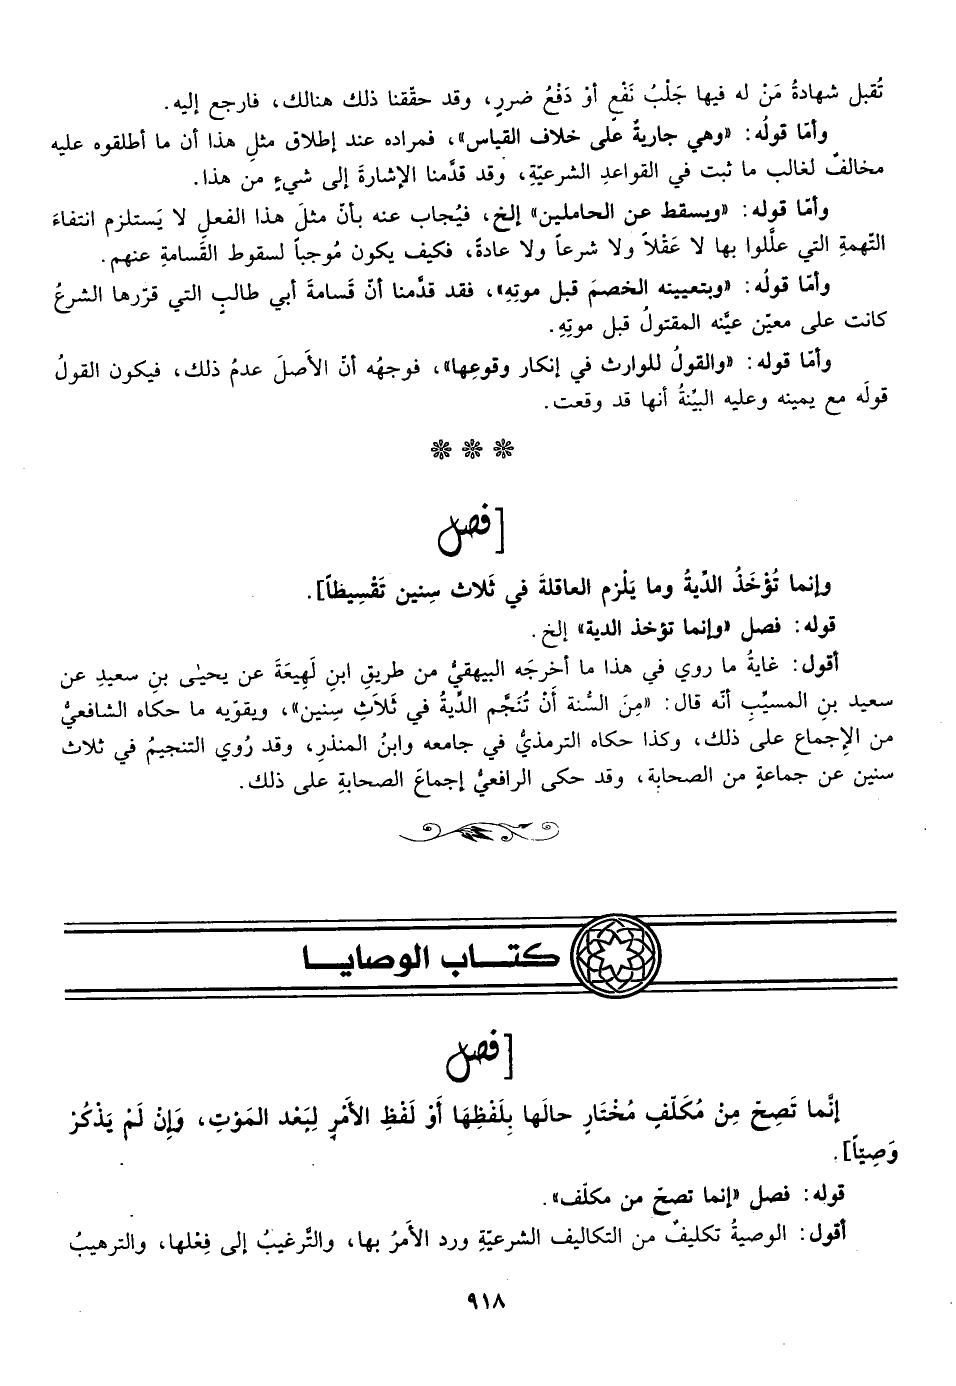 تُقبل شهادةُ مَنْ له فيها جَلْبُ نَفْعٍ أوْ دَفْعُ ضررٍ، وقد حقّقنا ذلك هنالك، فارجع إليه.
وأمّا قولُه: «وهي جاريةٌ على خلاف القياس»، فمراده عند إطلاق مثلِ هذا أن ما أطلقوه عليه
مخالفٌ لغالب ما ثبت في القواعدِ الشرعيّةِ، وقد قدَّمنا الإشارةَ إلى شيءٍ من هذا.
وأمّا قوله: «ويسقط عن الحاملين» إلخ، فيُجاب عنه بأنّ مثلَ هذا الفعلِ لا يَستلزم انتفاءَ
التّهمةِ التي علَّلوا بها لا عَقْلاً ولا شرعاً ولا عادةً، فكيف يكون مُوجباً لسقوط القَسامةِ عنهم.
وأمّا قولُه: «وبتعيينه الخصمَ قبل موتِهِ»، فقد قدَّمنا أنّ قَسامةَ أبي طالبٍ التي قرّرها الشرعُ
كانت على معيّن عيَّنه المقتولُ قبل موتِهِ.
وأمّا قوله: «والقولُ للوارث في إنكار وقوعِها»، فوجهُه أنّ الأصلَ عدمُ ذلك، فيكون القولُ
قولَه مع يمينه وعليه البيِّنةُ أنها قد وقعت.
❊ ❊ ❊
[فصل
وإنما تُؤْخَذُ الدِّيةُ وما يَلْزم العاقلةَ في ثَلاث سِنين تَقْسِيطاً].
قوله: فصل «وإنما تؤخذ الدية» إلخ.
أقول: غايةُ ما روي في هذا ما أخرجَه البيهقيُّ من طريقِ ابنِ لَهِيعَةَ عن يحيىٰ بنِ سعيدِ عن
سعيد بنِ المسيِّبِ أنّه قال: «مِنَ السُّنة أَنْ تُنَجَّم الدِّيةُ في ثَلَاثِ سِنين»، ويقوّيه ما حكاه الشافعيُّ
من الإِجماع على ذلك، وكذا حكاه الترمذيُّ في جامعه وابنُ المنذرِ، وقد رُوي التنجيمُ في ثلاث
سنين عن جماعةٍ من الصحابة، وقد حكى الرافعيُّ إجماعَ الصحابةِ على ذلك.
كتـاب الوصايـا
[فصل
إنَّما تَصِحّ مِنْ مُكَلّفٍ مُخْتَارٍ حالَها بِلَفْظِهَا أَوْ لَفْظِ الأَمْرِ لِبَعْد المَوْتِ، وَإِنْ لَمْ يَذْكُرْ
وَصِيّاً].
قوله: فصل «إنما تصحّ من مكلّف».
أقول: الوصيةُ تكليفٌ من التكاليف الشرعيّةِ ورد الأَمرُ بها، والتَّرغيبُ إلى فِعْلها، والترهيبُ
٩١٨